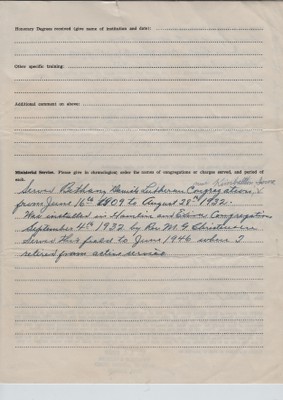 Honorary Degrees received (give name of institution and date):
Other specific training:
Additional comment on above:
Ministerial Service. Please give in chronological order the names of congregations or charges served, and period of
each.
near Kimballton Iowa
Served Bethany Danish Lutheran Congregation,
from June 16th 1909 to August 28th 1932.
Was installed in Hamlin and Exira Congregation
September 4th 1932 by Rev M. G. Christensen
Served this field to June 1946 when I
retired from active service